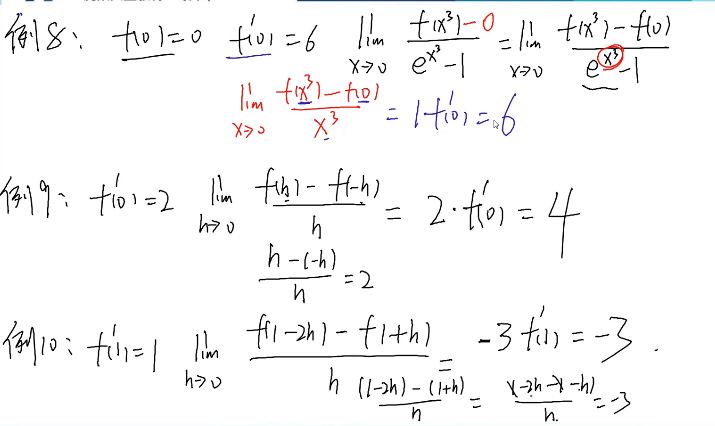 例8: f(0)=0 f'(0)=6 lim x→0 f(x³)-0 / e^(x³)-1 = lim x→0 f(x³)-f(0) / e^(x³)-1
lim x→0 f(x³)-f(0) / x³ = 1·f'(0) = 6
例9: f'(0)=2 lim h→0 f(h)-f(-h) / h = 2·f'(0) = 4
h-(-h) / h = 2
例10: f'(1)=1 lim h→0 f(1-2h)-f(1+h) / h = -3f'(1) = -3.
(1-2h)-(1+h) / h = x-2h-x-h) / h = -3